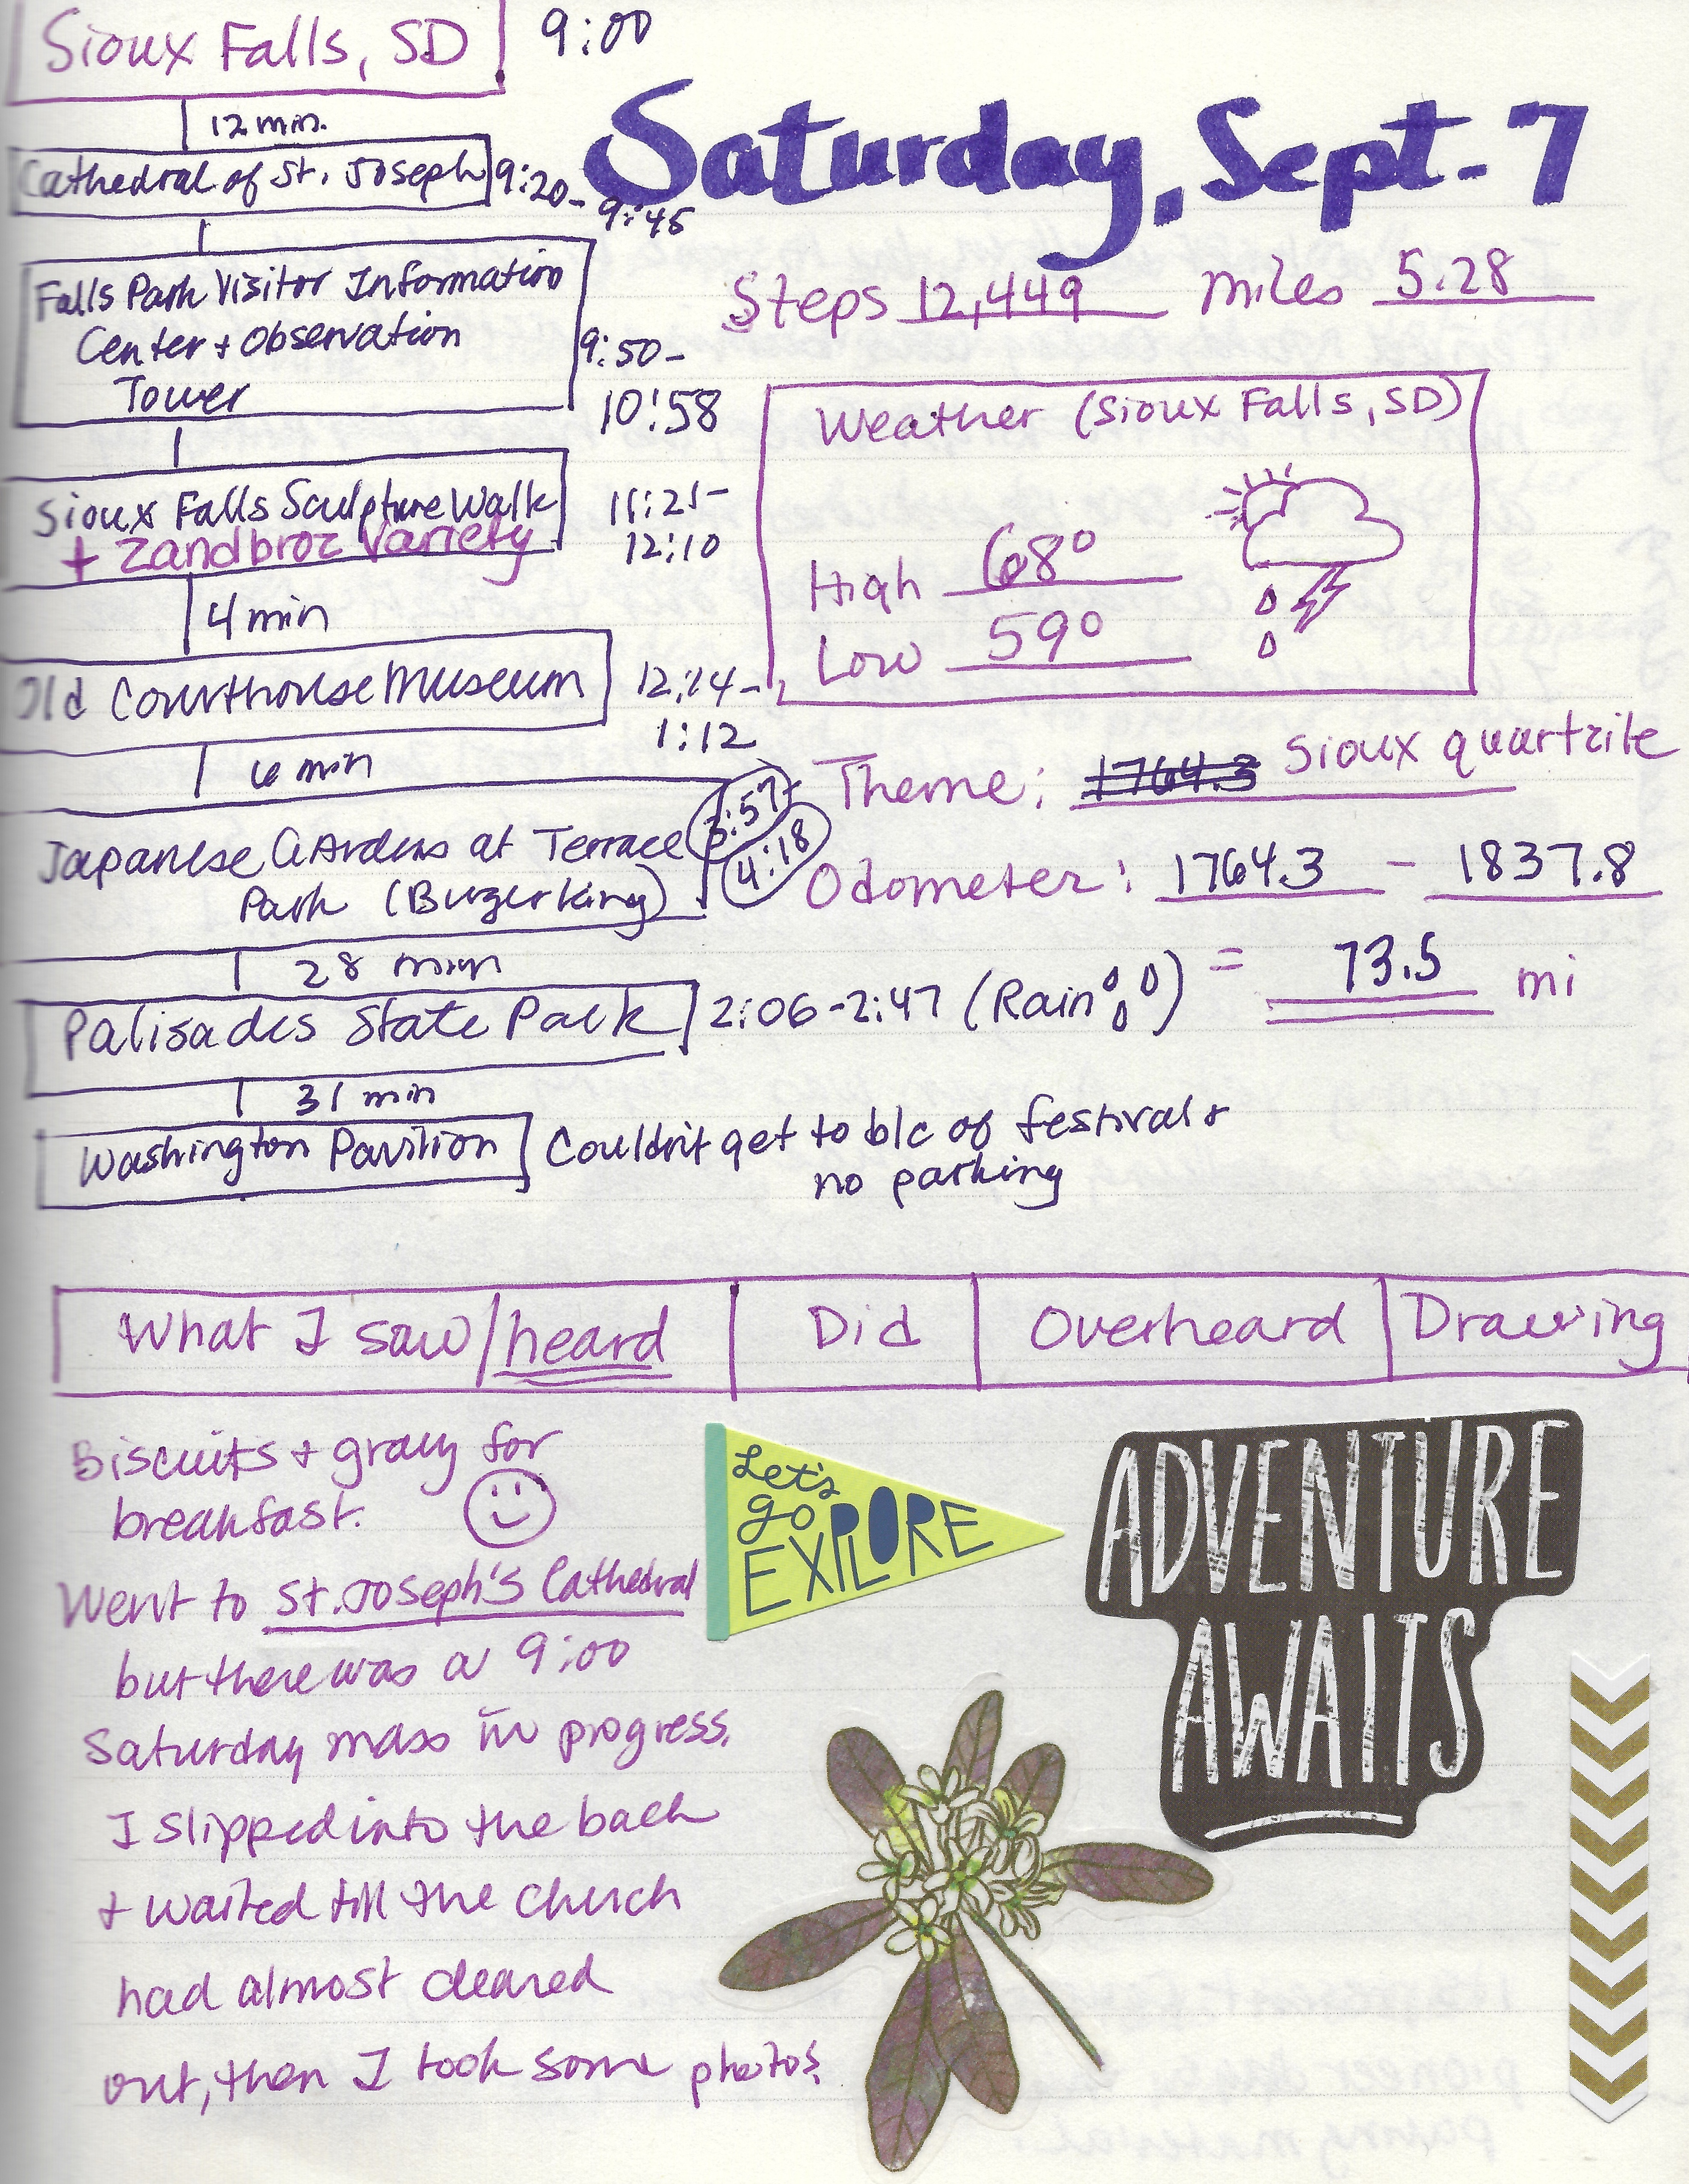 Sioux Falls, SD 9:00
12 min.
Saturday, Sept. 7
Cathedral of St. Joseph 9:20-
9:45
Falls Park Visitor Information
Center + Observation
Tower
9:50-
10:58
Steps 12,449 miles 5.28
Weather (Sioux Falls, SD)
High 68°
Low 59°
Sioux Falls Sculpture Walk
+ Zandbroz Variety
11:21-
12:10
4 min
Old Courthouse Museum
12:14-
1:12
6 min
Theme: 1764.3 Sioux quartzite
Japanese Gardens at Terrace
Park (Burgerking)
:57-
4:18
Odometer: 1764.3 - 1837.8
= 73.5 mi
28 min
Palisades State Park 2:06-2:47 (Rain)
31 min
Washington Pavilion Couldn't get to b/c of festival +
no parking
What I saw/heard Did Overheard Drawing
Biscuits + gravy for
breakfast.
Went to St. Joseph's Cathedral
but there was a 9:00
Saturday mass in progress.
I slipped into the back
+ waited till the church
had almost cleared
out, then I took some photos.
Let's
go
EXPLORE
ADVENTURE
AWAITS